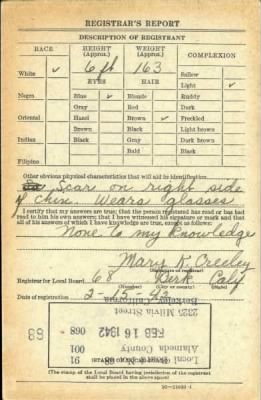 REGISTRAR'S REPORT
DESCRIPTION OF REGISTRANT
RACE HEIGHT (Approx.) WEIGHT (Approx.) COMPLEXION
6 ft 163 Sallow
White ✓ EYES HAIR Light ✓
Negro Blue ✓ Blonde Ruddy
Gray Red Dark
Oriental Hazel Brown ✓ Freckled
Brown Black Light brown
Indian Black Gray Dark brown
Bald Black
Filipino
Other obvious physical characteristics that will aid in identification
Scar on right side
of chin. Wears glasses
I certify that my answers are true; that the person registered has read or has had
read to him his own answers; that I have witnessed his signature or mark and that
all of his answers of which I have knowledge are true, except as follows:
None to my knowledge
Mary K. Creeley
(Signature of registrar)
Registrar for Local Board 68 Berk Calif
(Number) (City or county) (State)
Date of registration 2-15-42
Local Board
Alameda County
FEB 16 1942 068
2325 Milvia Street
Berkeley California
91
001
68
(STAMP OF LOCAL BOARD)
(The stamp of the Local Board having jurisdiction of the registrant
shall be placed in the above space.)